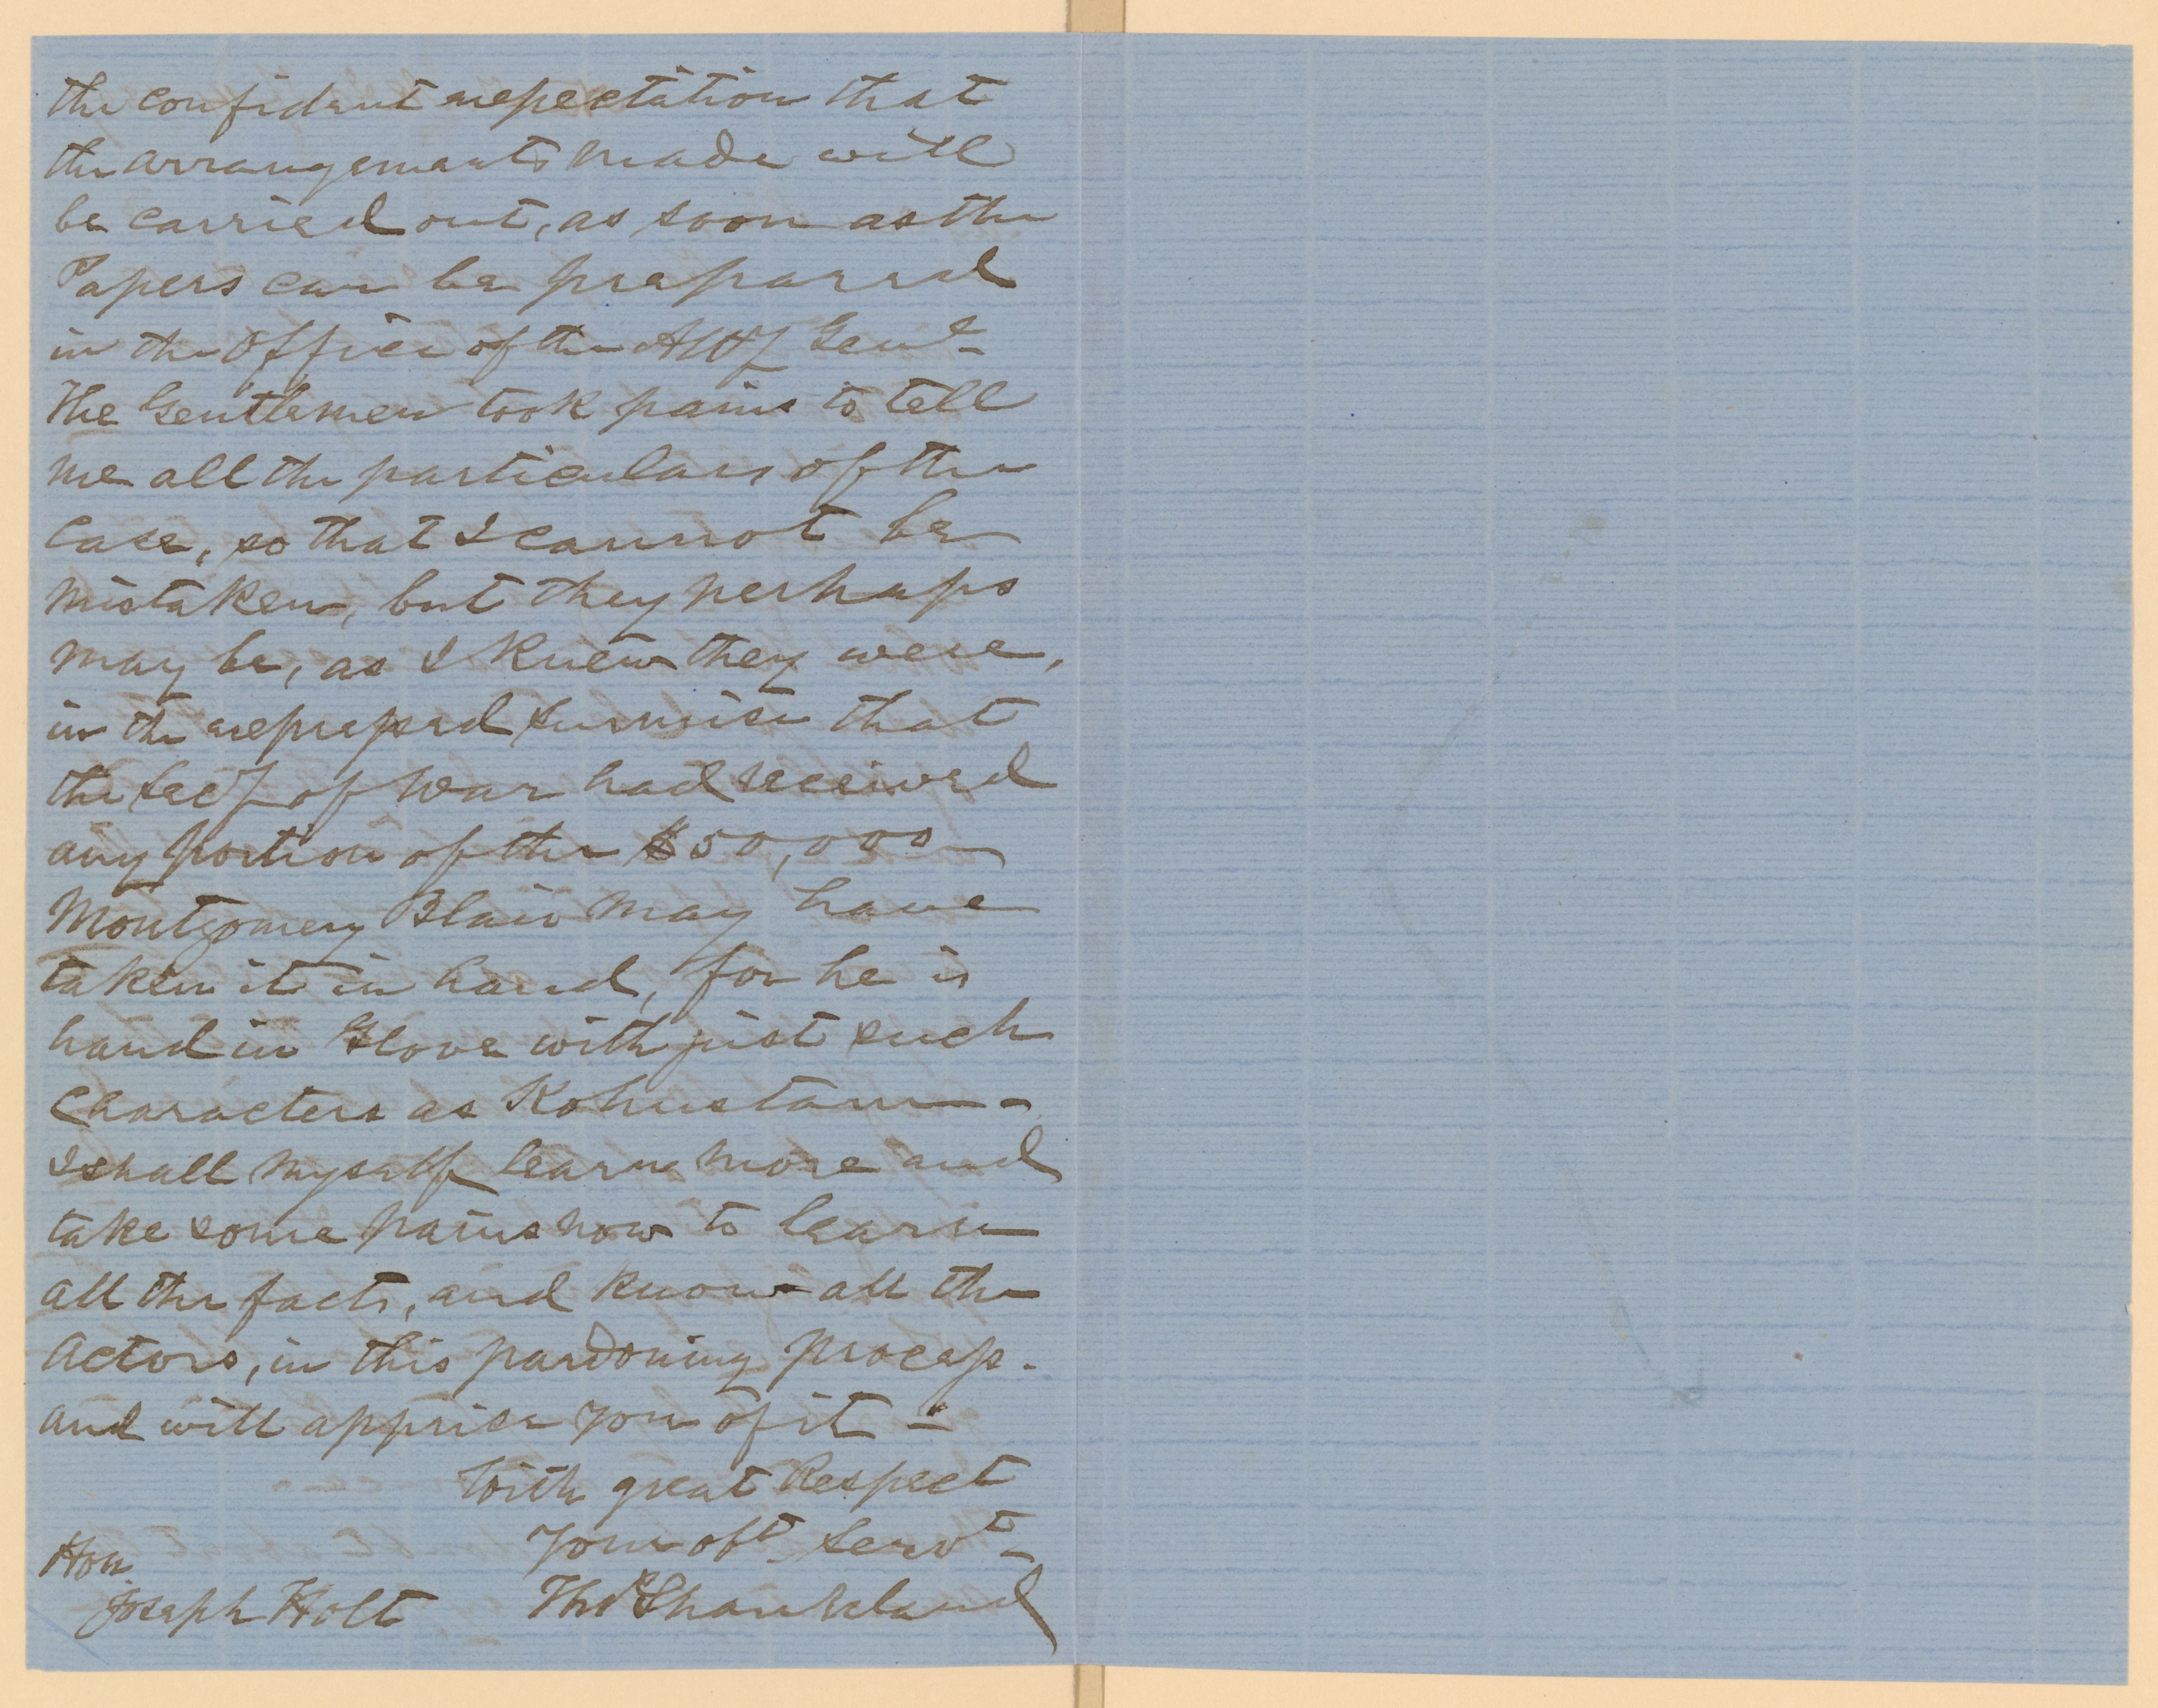 the confident expectation that
the arrangements made will
be carried out, as soon as the
Papers can be prepared
in the Office of the Atty Genl-
The Gentlemen took pains to tell
me all the particulars of the
Case, so that I cannot be
mistaken, but they perhaps
may be, as I knew they were,
in the expressed surmise that
the Secy of War had received
any portion of the $50,000
Montgomery Blair may have
taken it in hand, for he is
hand in Glove with just such
Characters as Kohnstamm-
I shall myself learn more and
take some pains now to learn
all the facts, and know all the
Actors, in this pardoning process.
and will apprise you of it -
With great Respect
Your obt Servt-
Hon
Joseph Holt Thos Shankland